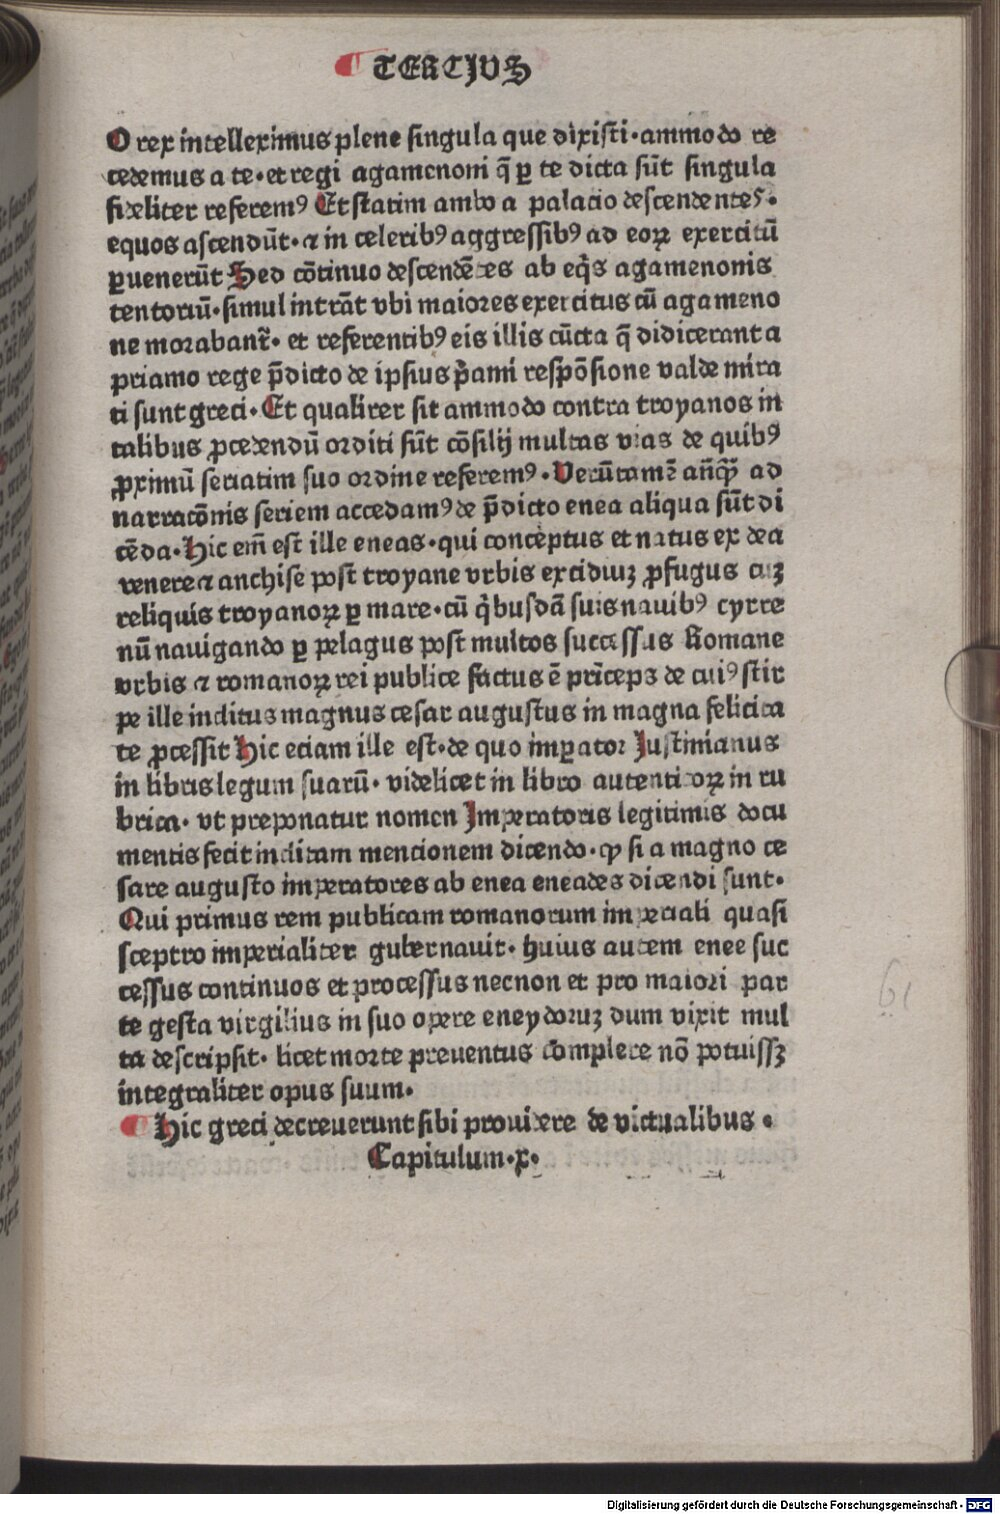 ¶ TERCJVS
O rex intelleximus plene singula que dixisti·ammodo re
cedemus a te·et regi agamenoni q̄ ꝑ te dicta sūt singula
fideliter referemꝰ Et statim ambo a palacio descendentes·
equos ascendūt·⁊ in celeribꝰ aggressibꝰ ad eoꝝ exercitū
ꝑuenerūt Sed cōtinuo descendētes ab eq̄s agamenonis
tentoriū·simul intrāt vbi maiores exercitus cū agameno
ne morabant̄·et referentibꝰ eis illis cūcta q̄ didicerant a
priamo rege p̄dicto de ipsius p̄ami respōsione valde mira
ti sunt greci·Et qualirer sit ammodo contra troyanos in
talibus ꝓcedendū orditi sūt cōsilij multas vias de quibꝰ
ꝓximū seriatim suo ordine referemꝰ·Verūtamē an̄qꝫ ad
narracōnis seriem accedamꝰ de p̄dicto enea aliqua sūt di
cēda·Hic em̄ est ille eneas·qui conceptus et natus ex dea
venere ⁊ anchise post troyane vrbis excidiuꝫ ꝓfugus cuꝫ
reliquis troyanoꝝ ꝑ mare·cū q̄busdā suis nauibꝰ cyrre
nū nauigando ꝑ pelagus post multos successus Romane
vrbis ⁊ romanoꝝ rei publice factus ē prīceps de cuiꝰ stir
pe ille inclitus magnus cesar augustus in magna felicita
te ꝓcessit Hic eciam ille est·de quo imꝑator Justinianus
in libris legum suarū·videlicet in libro autenticoꝝ in ru
brica·vt preponatur nomen Imperatoris legitimis docu
mentis fecit inclitam mencionem dicendo·ꝙ si a magno ce
sare augusto imperatores ab enea eneades dicendi sunt·
Qui primus rem publicam romanorum imperiali quasi
sceptro imperialiter gubernauit·huius autem enee suc
cessus continuos et processus necnon et pro maiori par
te gesta virgilius in suo opere eneydoruꝫ dum vixit mul
ta descripsit·licet morte preuentus complere nō potuissꝫ
integraliter opus suum·
¶ Hic greci decreuerunt sibi prouidere de victualibus·
Capitulum·x·
61
Digitalisierung gefördert durch die Deutsche Forschungsgemeinschaft - DFG